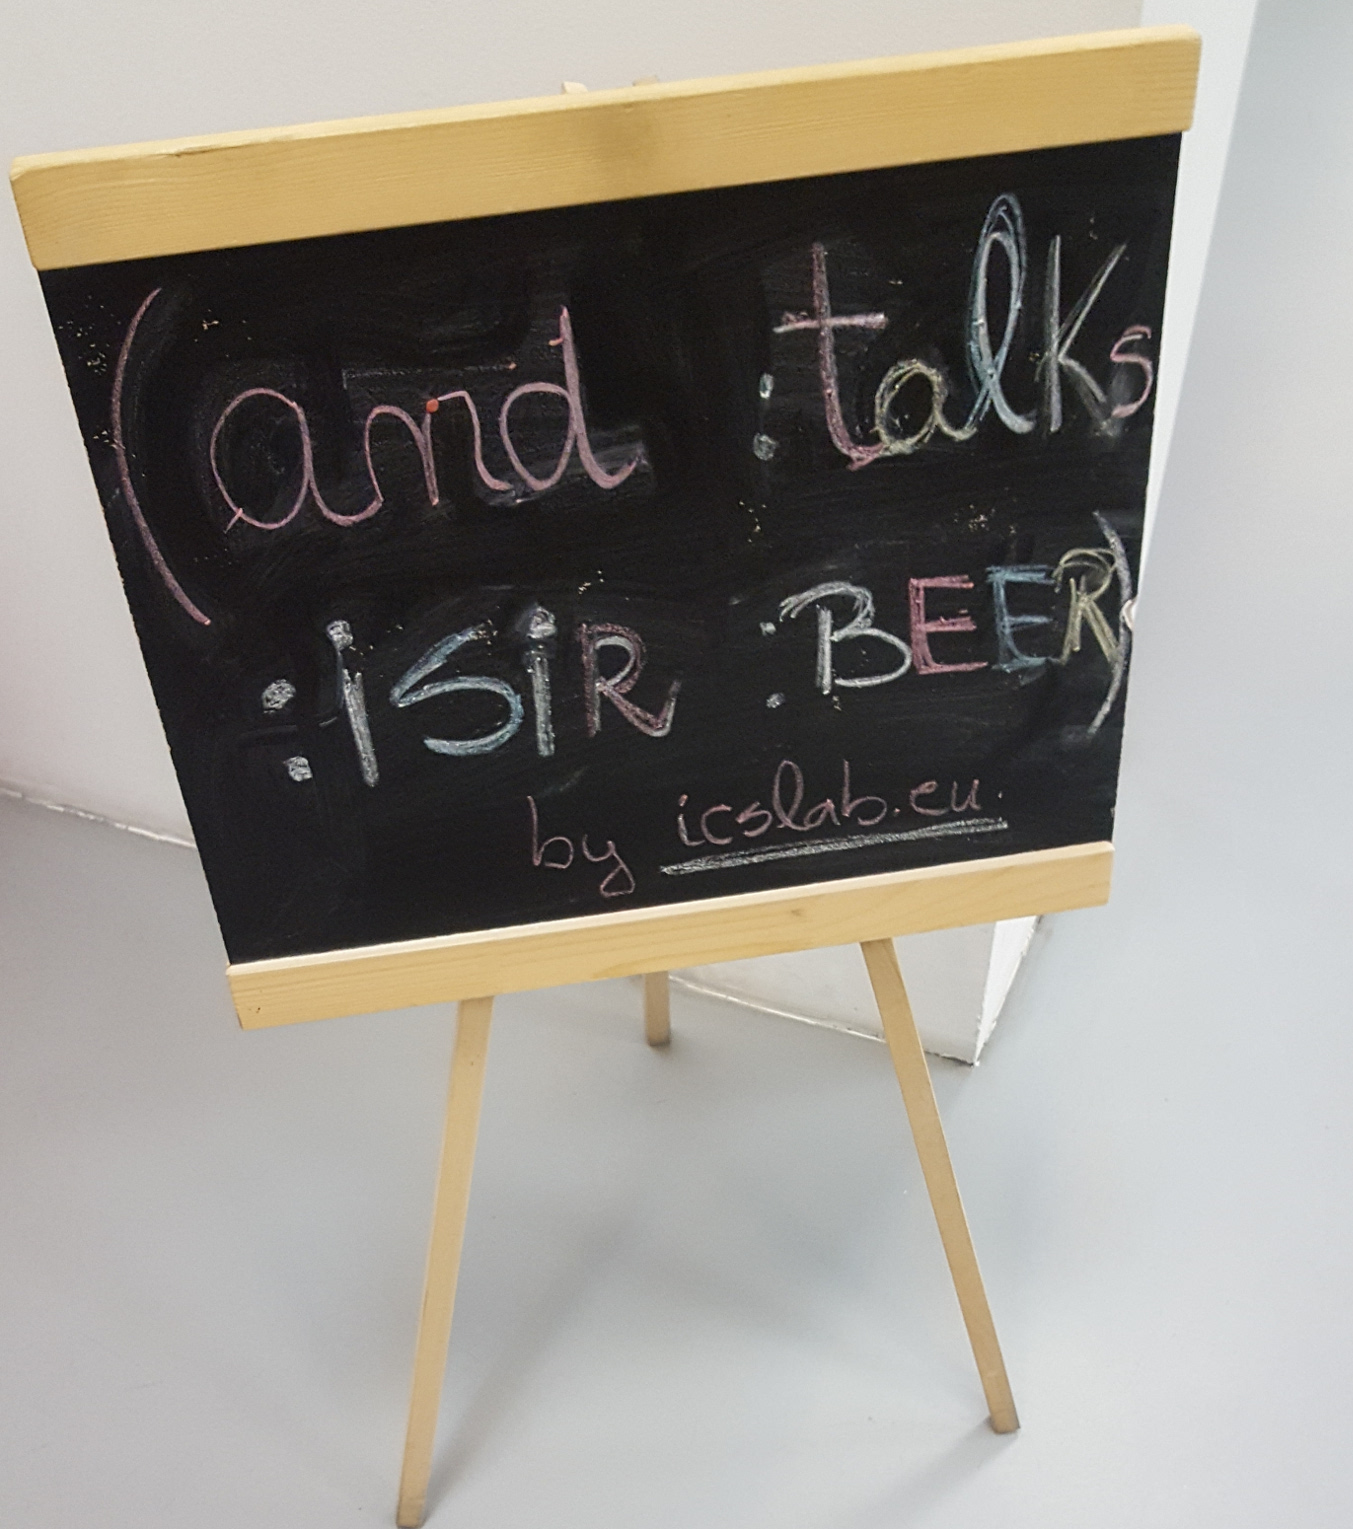 (and :talks
:iSiR :BEER)
by icslab.eu.